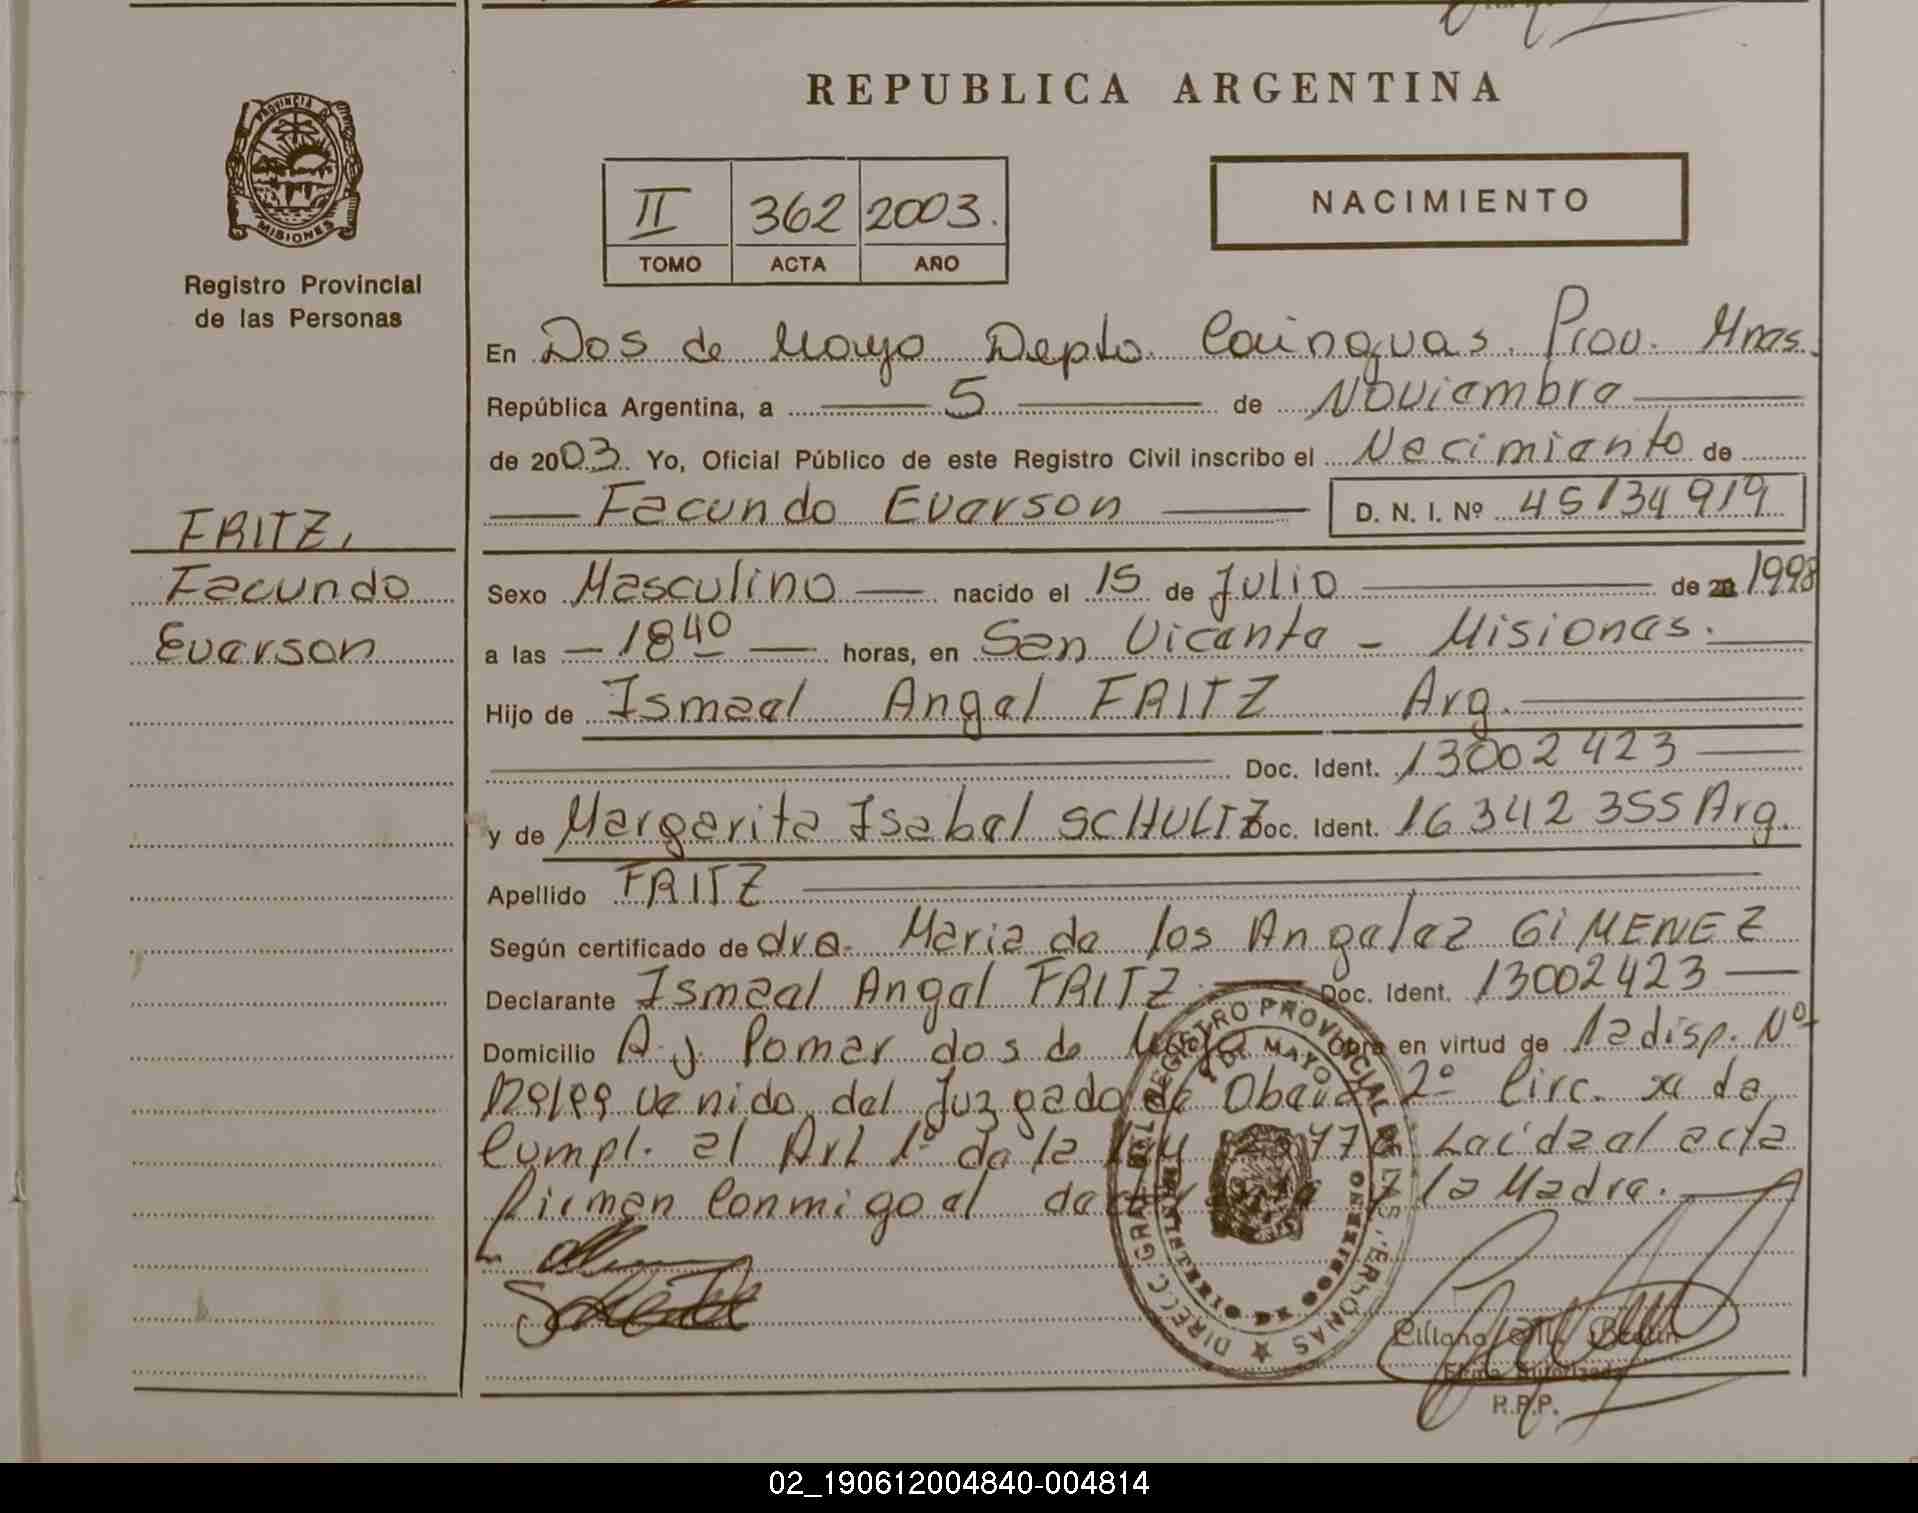 REPUBLICA ARGENTINA
PROVINCIA DE
MISIONES
Registro Provincial
de las Personas
II 362 2003.
TOMO ACTA AÑO
NACIMIENTO
En Dos de Mayo Depto. Cainguas. Prov. Mnes.
República Argentina, a 5 de Noviembre
de 2003. Yo, Oficial Público de este Registro Civil inscribo el Nacimiento de
Facundo Everson D. N. I. Nº 45134919
FRITZ,
Facundo
Everson
Sexo Masculino nacido el 15 de Julio de 1998
a las 18 40 horas, en San Vicente - Misiones.
Hijo de Ismael Angel FRITZ Arg.
Doc. Ident. 13002423
y de Margarita Isabel SCHULTZ Doc. Ident. 16342355 Arg.
Apellido FRITZ
Según certificado de dra. Maria de los Angelez GIMENEZ
Declarante Ismael Angel FRITZ Doc. Ident. 13002423
Domicilio A. J. Pomar dos de Mayo Obra en virtud de la disp. Nº
venido del Juzgado de 2º Circ. de
Cumpl. al Art 1º de la ley Leída el acta
firman Conmigo el y la Madre.
DIRECC. GRAL. DEL REGISTRO PROVINCIAL DE LAS PERSONAS
DE MAYO
Firma Autorizada
R.P.P.
02_190612004840-004814